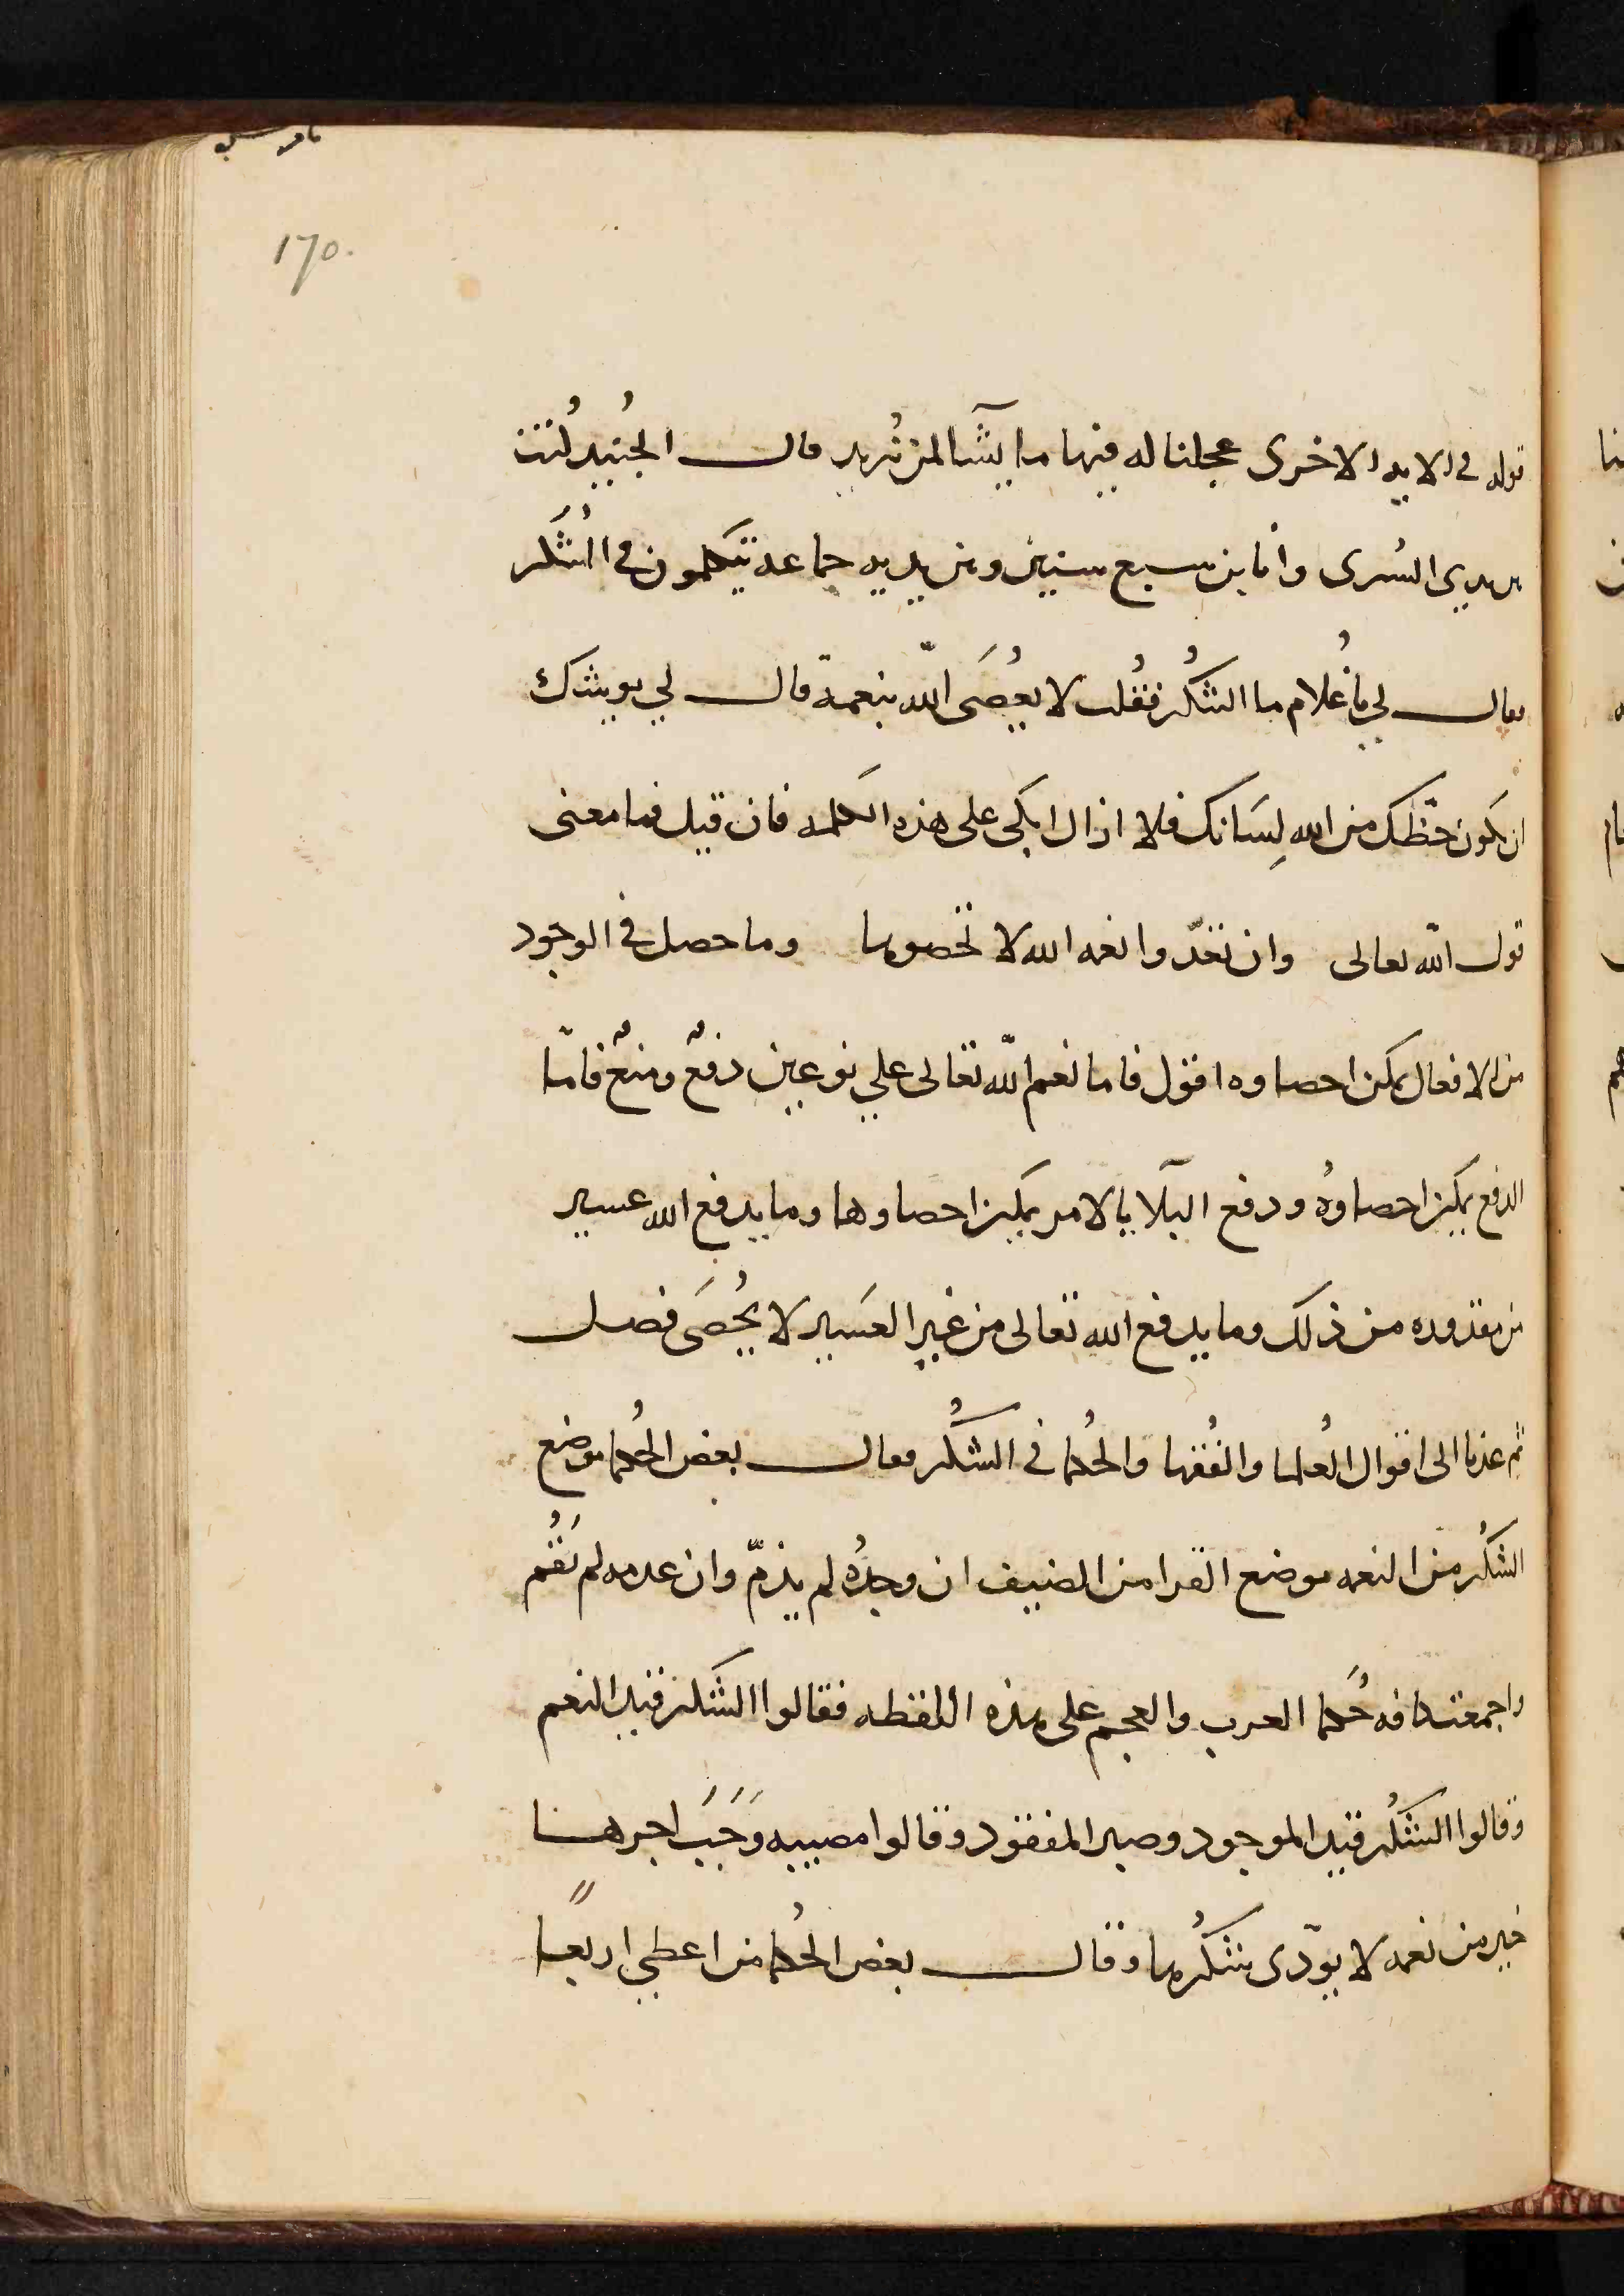 170.
قوله في الايه الاخرى عجلنا له فيها ما يشآ لمن نُريد قال الجُنيد كُنت
بين يدي السُرى وانا بن سبع سنين وبين يديه جماعه يتكلمون في الشُكر
فقال لي يا غُلام ما الشكُر فقُلت لا يُعصَى الله بنعمه قال لي يوشك
ان يكون حظّك من الله لِسَانك فلا ازال ابكى على هذه الكلمه فان قيل فما معنى
قول الله تعالى وان تعدّوا نعمه الله لا تحصوها وما حصل في الوجود
من الافعال يمكن احصاوه اقول فاما نعم الله تعالى علي نوعين دفعٌ ومنعٌ فامّا
الدفع يمكن احصاوُه ودفع البلآيا بالامر يمكن احصاوها وما يدفع الله عسير
من مقدوره من ذلك وما يدفع الله تعالى من غير العسَير لا يُحصَى فصل
ثم عدنا الى اقوال العُلما والفُقها والحُكما في الشكُر فقال بعض الحُكما موضع
الشكُر من النعمه موضع القرا من الضيف ان وجدُه لم يذمّ وان عدمه لم يَقُم
واجمعت كافه حُكما العرب والعجم على هذه اللفظه فقالوا الشكر قيد النعم
وقالوا الشكُر قيد الموجود وصيد المفقود وقالوا مصيبه وَجَبَ اجرها
خير من نعمه لا يودّى شكُرها وقال بعض الحُكما من اعطي اربعًا